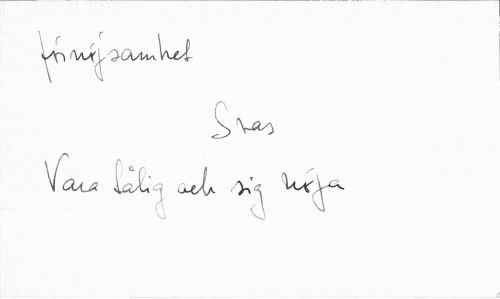 förnöjsamhet
Svar
Vara sålig och sig nöja